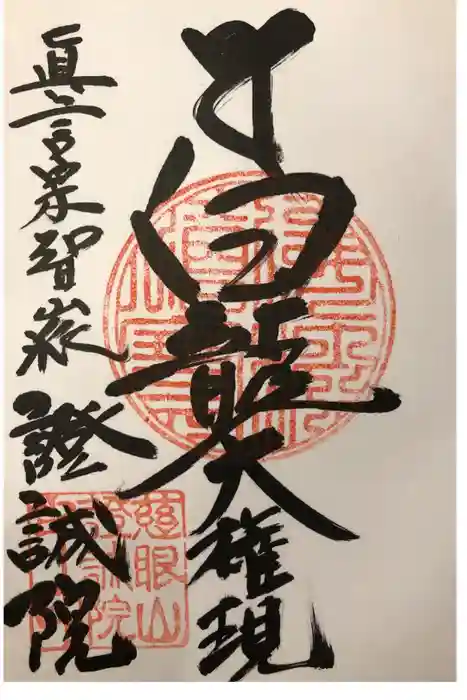 白龍大権現
眞言宗智山派 證誠院
慈眼山
證誠院